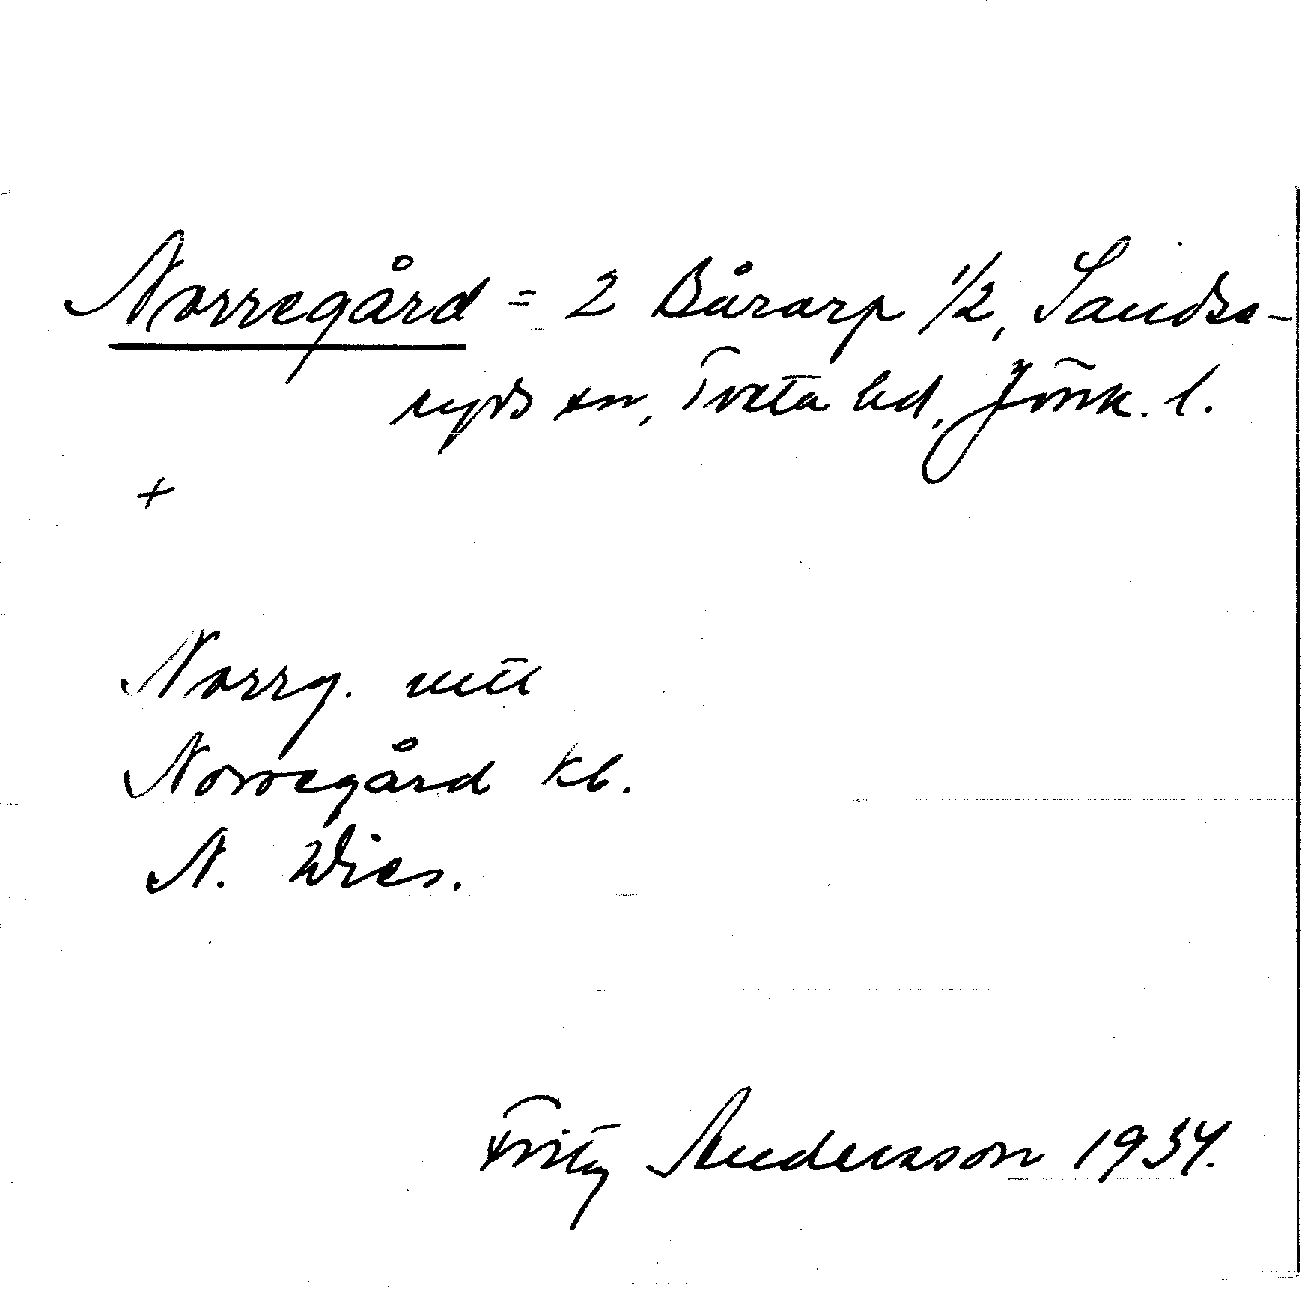 Norregård = 2 Bårarp 1/2, Sandse-
ryds sn, Tveta hd, Jönk. l.
+
Norrg. uttl
Norregård kb.
N. Wies.
Fritz Andersson 1934.